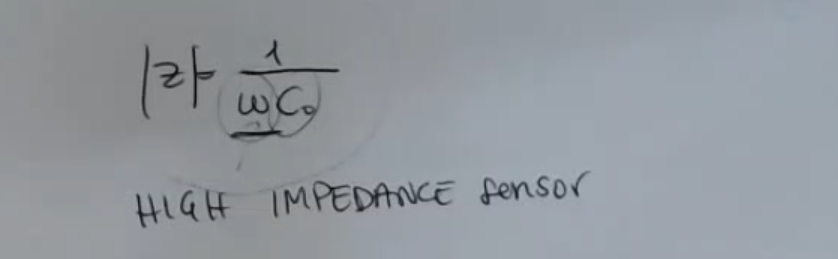 |Z| = 1 / ωC₀
HIGH IMPEDANCE sensor